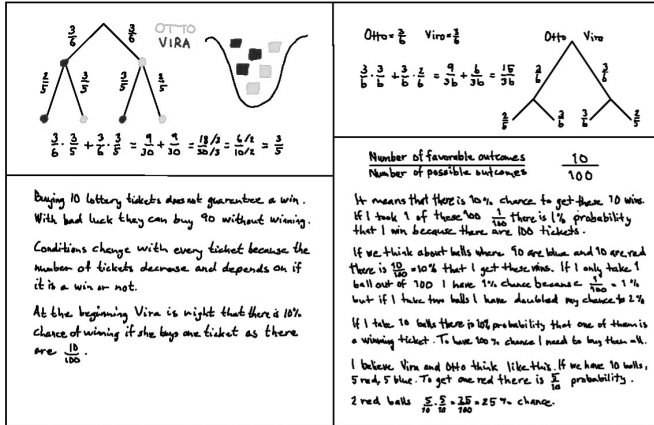 3/6 3/6
OTTO
VIRA
2/5 3/5 3/5 2/5
3/6 · 3/5 + 3/6 · 3/5 = 9/30 + 9/30 = 18/3 / 30/3 = 6/2 / 10/2 = 3/5
Buying 10 lottery tickets does not guarantee a win.
With bad luck they can buy 90 without winning.
Conditions change with every ticket because the
number of tickets decrease and depends on if
it is a win or not.
At the beginning Vira is right that there is 10%
chance of winning if she buys one ticket as there
are 10/100.
Otto = 3/6 Viro = 3/6
Otto Viro
3/6 · 3/6 + 3/6 · 2/6 = 9/36 + 6/36 = 15/36
3/6 3/6
2/6 3/6 3/6 2/5
Number of favorable outcomes 10
Number of possible outcomes 100
It means that there is 10% chance to get these 10 wins.
If I took 1 of these 100 1/100 there is 1% probability
that I win because there are 100 tickets.
If we think about balls where 90 are blue and 10 are red
there is 10/100 = 10% that I get these wins. If I only take 1
ball out of 100 I have 1% chance because 1/100 = 1%
but if I take two balls I have doubled my chance to 2%
If I take 10 balls there is 10% probability that one of them is
a winning ticket. To have 100% chance I need to buy them all.
I believe Vira and Otto think like this. If we have 10 balls,
5 red, 5 blue. To get one red there is 5/10 probability.
2 red balls 5/10 · 5/10 = 25/100 = 25% chance.